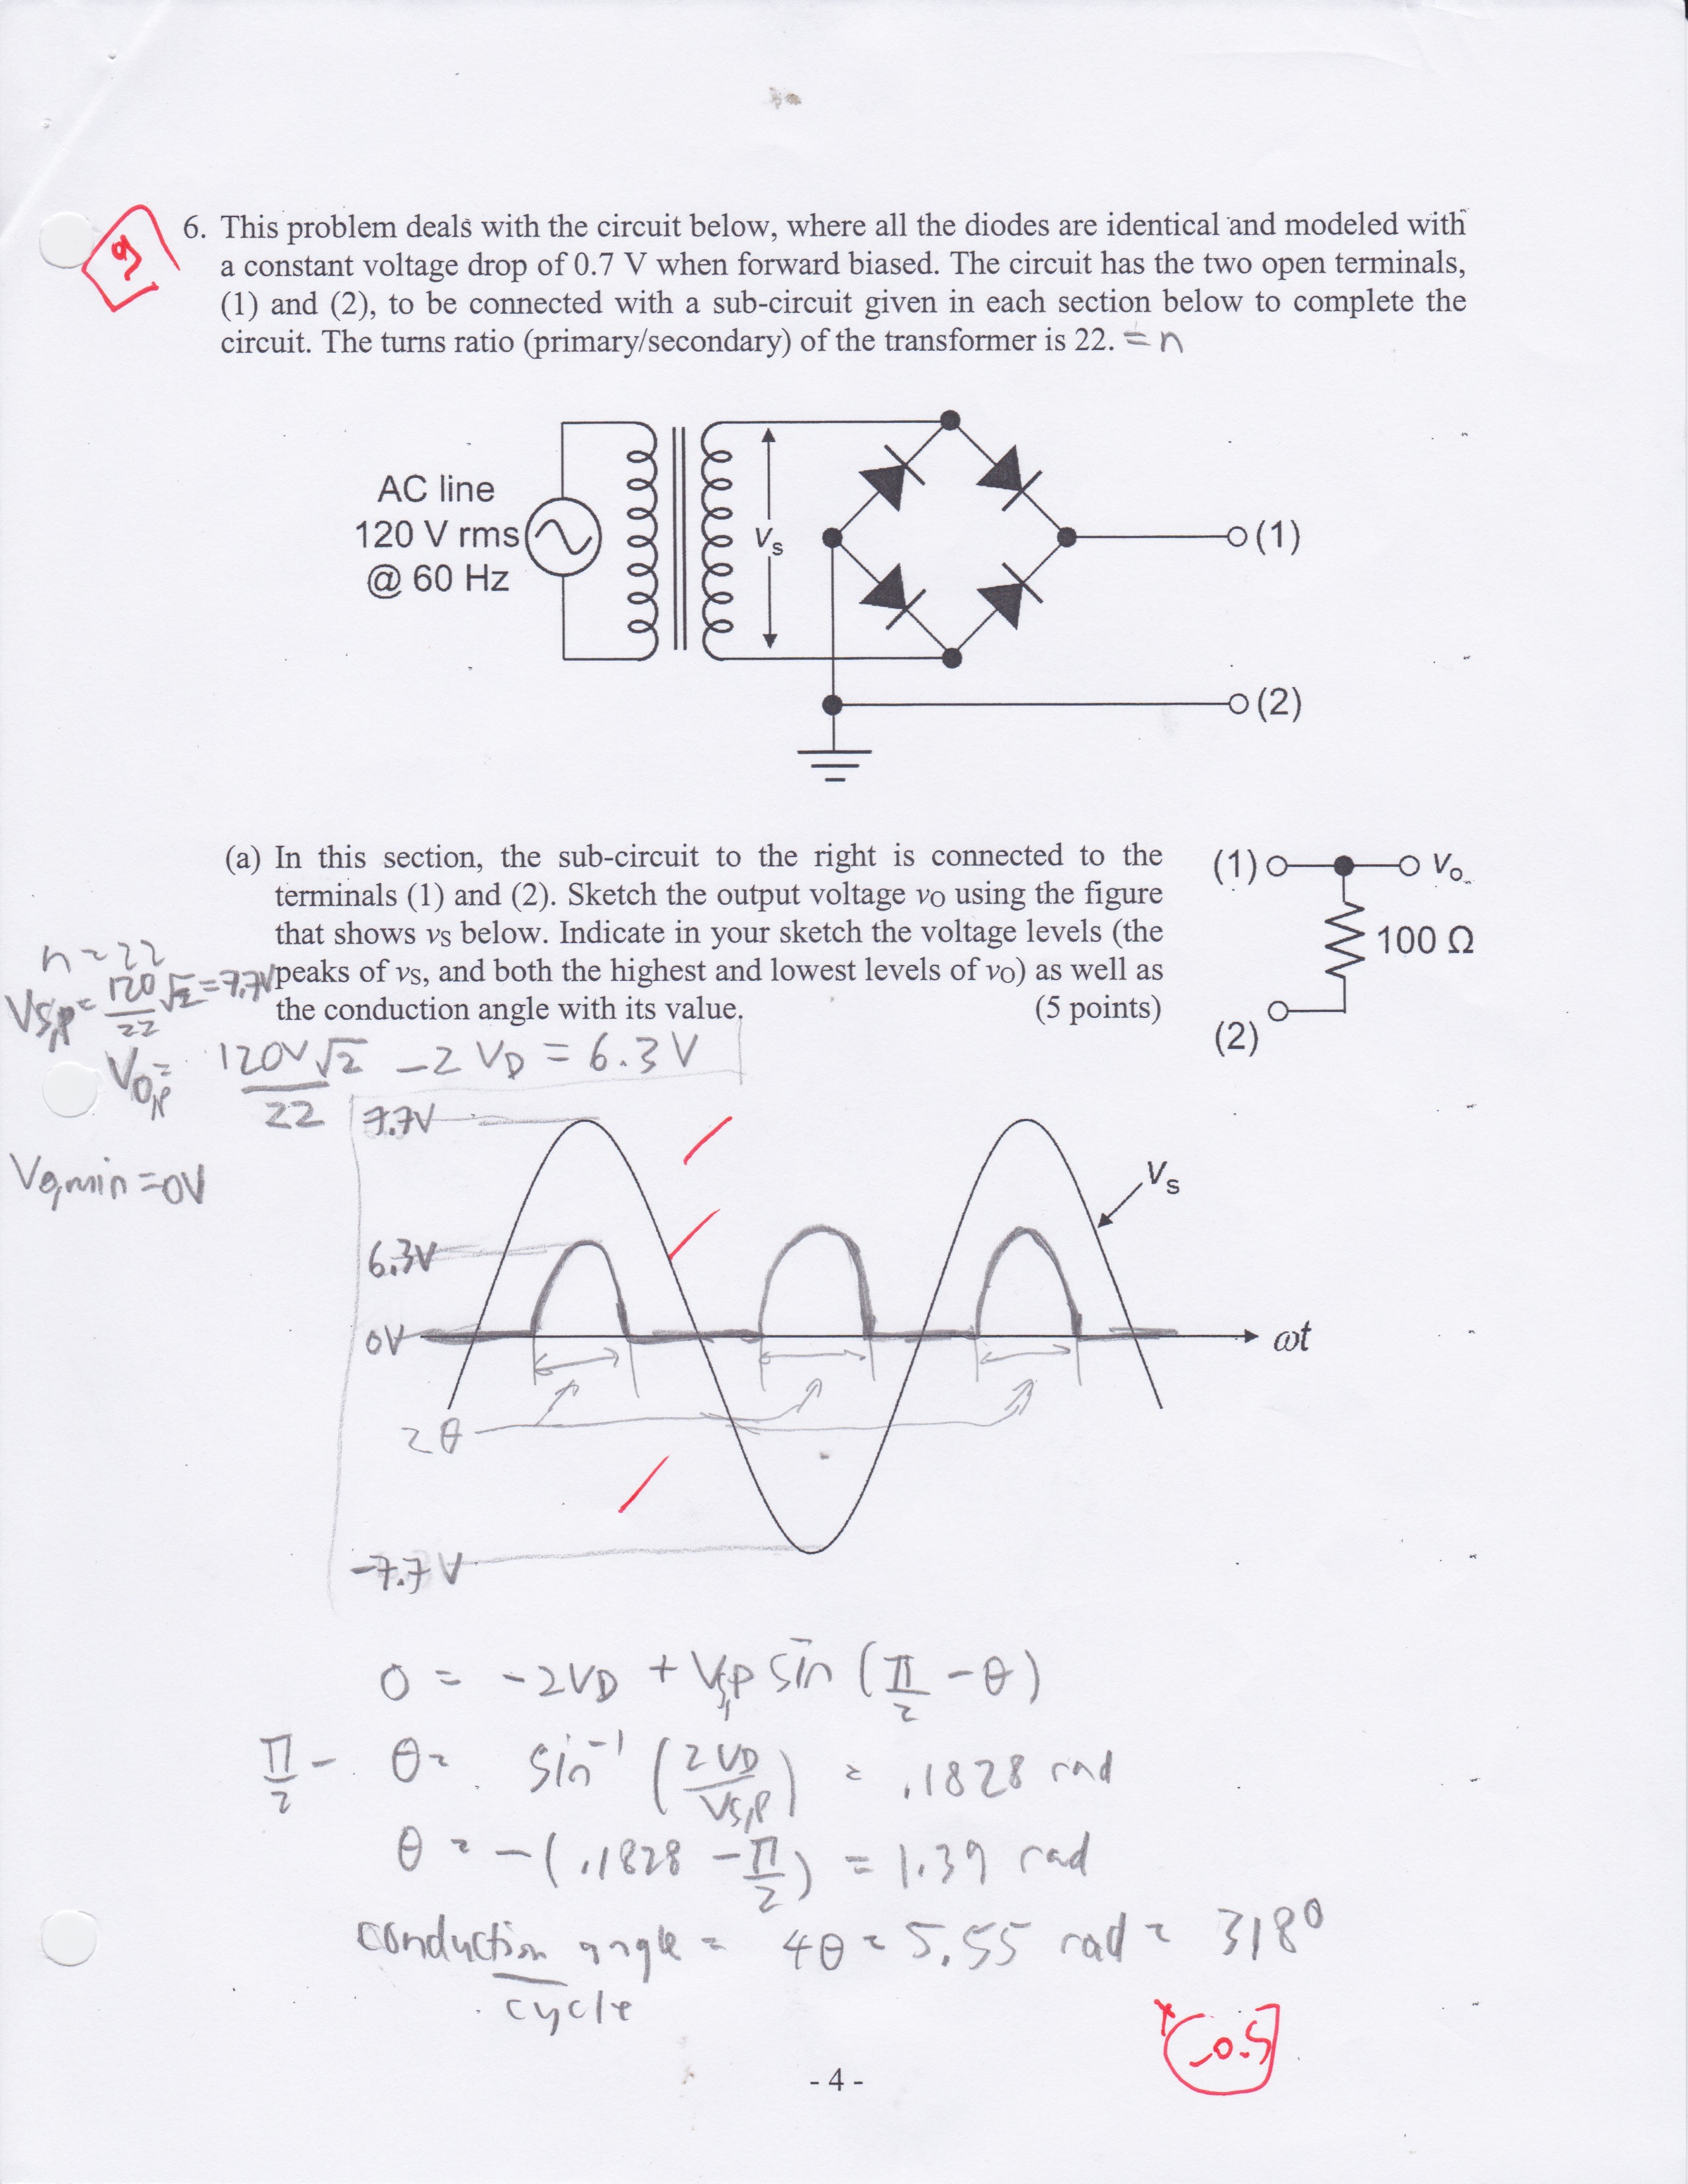 9
6. This problem deals with the circuit below, where all the diodes are identical and modeled with
a constant voltage drop of 0.7 V when forward biased. The circuit has the two open terminals,
(1) and (2), to be connected with a sub-circuit given in each section below to complete the
circuit. The turns ratio (primary/secondary) of the transformer is 22. = n
AC line
120 V rms
@ 60 Hz
Vs
(1)
(2)
(a) In this section, the sub-circuit to the right is connected to the
terminals (1) and (2). Sketch the output voltage vO using the figure
that shows vS below. Indicate in your sketch the voltage levels (the
peaks of vS, and both the highest and lowest levels of vO) as well as
the conduction angle with its value. (5 points)
(1)
Vo
100 Ω
(2)
n = 22
Vs,p = 120/22 √2 = 7.7V
Vo,p = 120V√2/22 - 2 VD = 6.3 V
Vo,min = 0V
7.7V
Vs
6.3V
0V
ωt
2θ
-7.7 V
0 = -2VD + Vs,p sin (π/2 - θ)
π/2 - θ = sin⁻¹ (2VD/Vs,p) = .1828 rad
θ = -(.1828 - π/2) = 1.39 rad
conduction angle = 4θ = 5.55 rad = 318°
cycle
-0.5
- 4 -